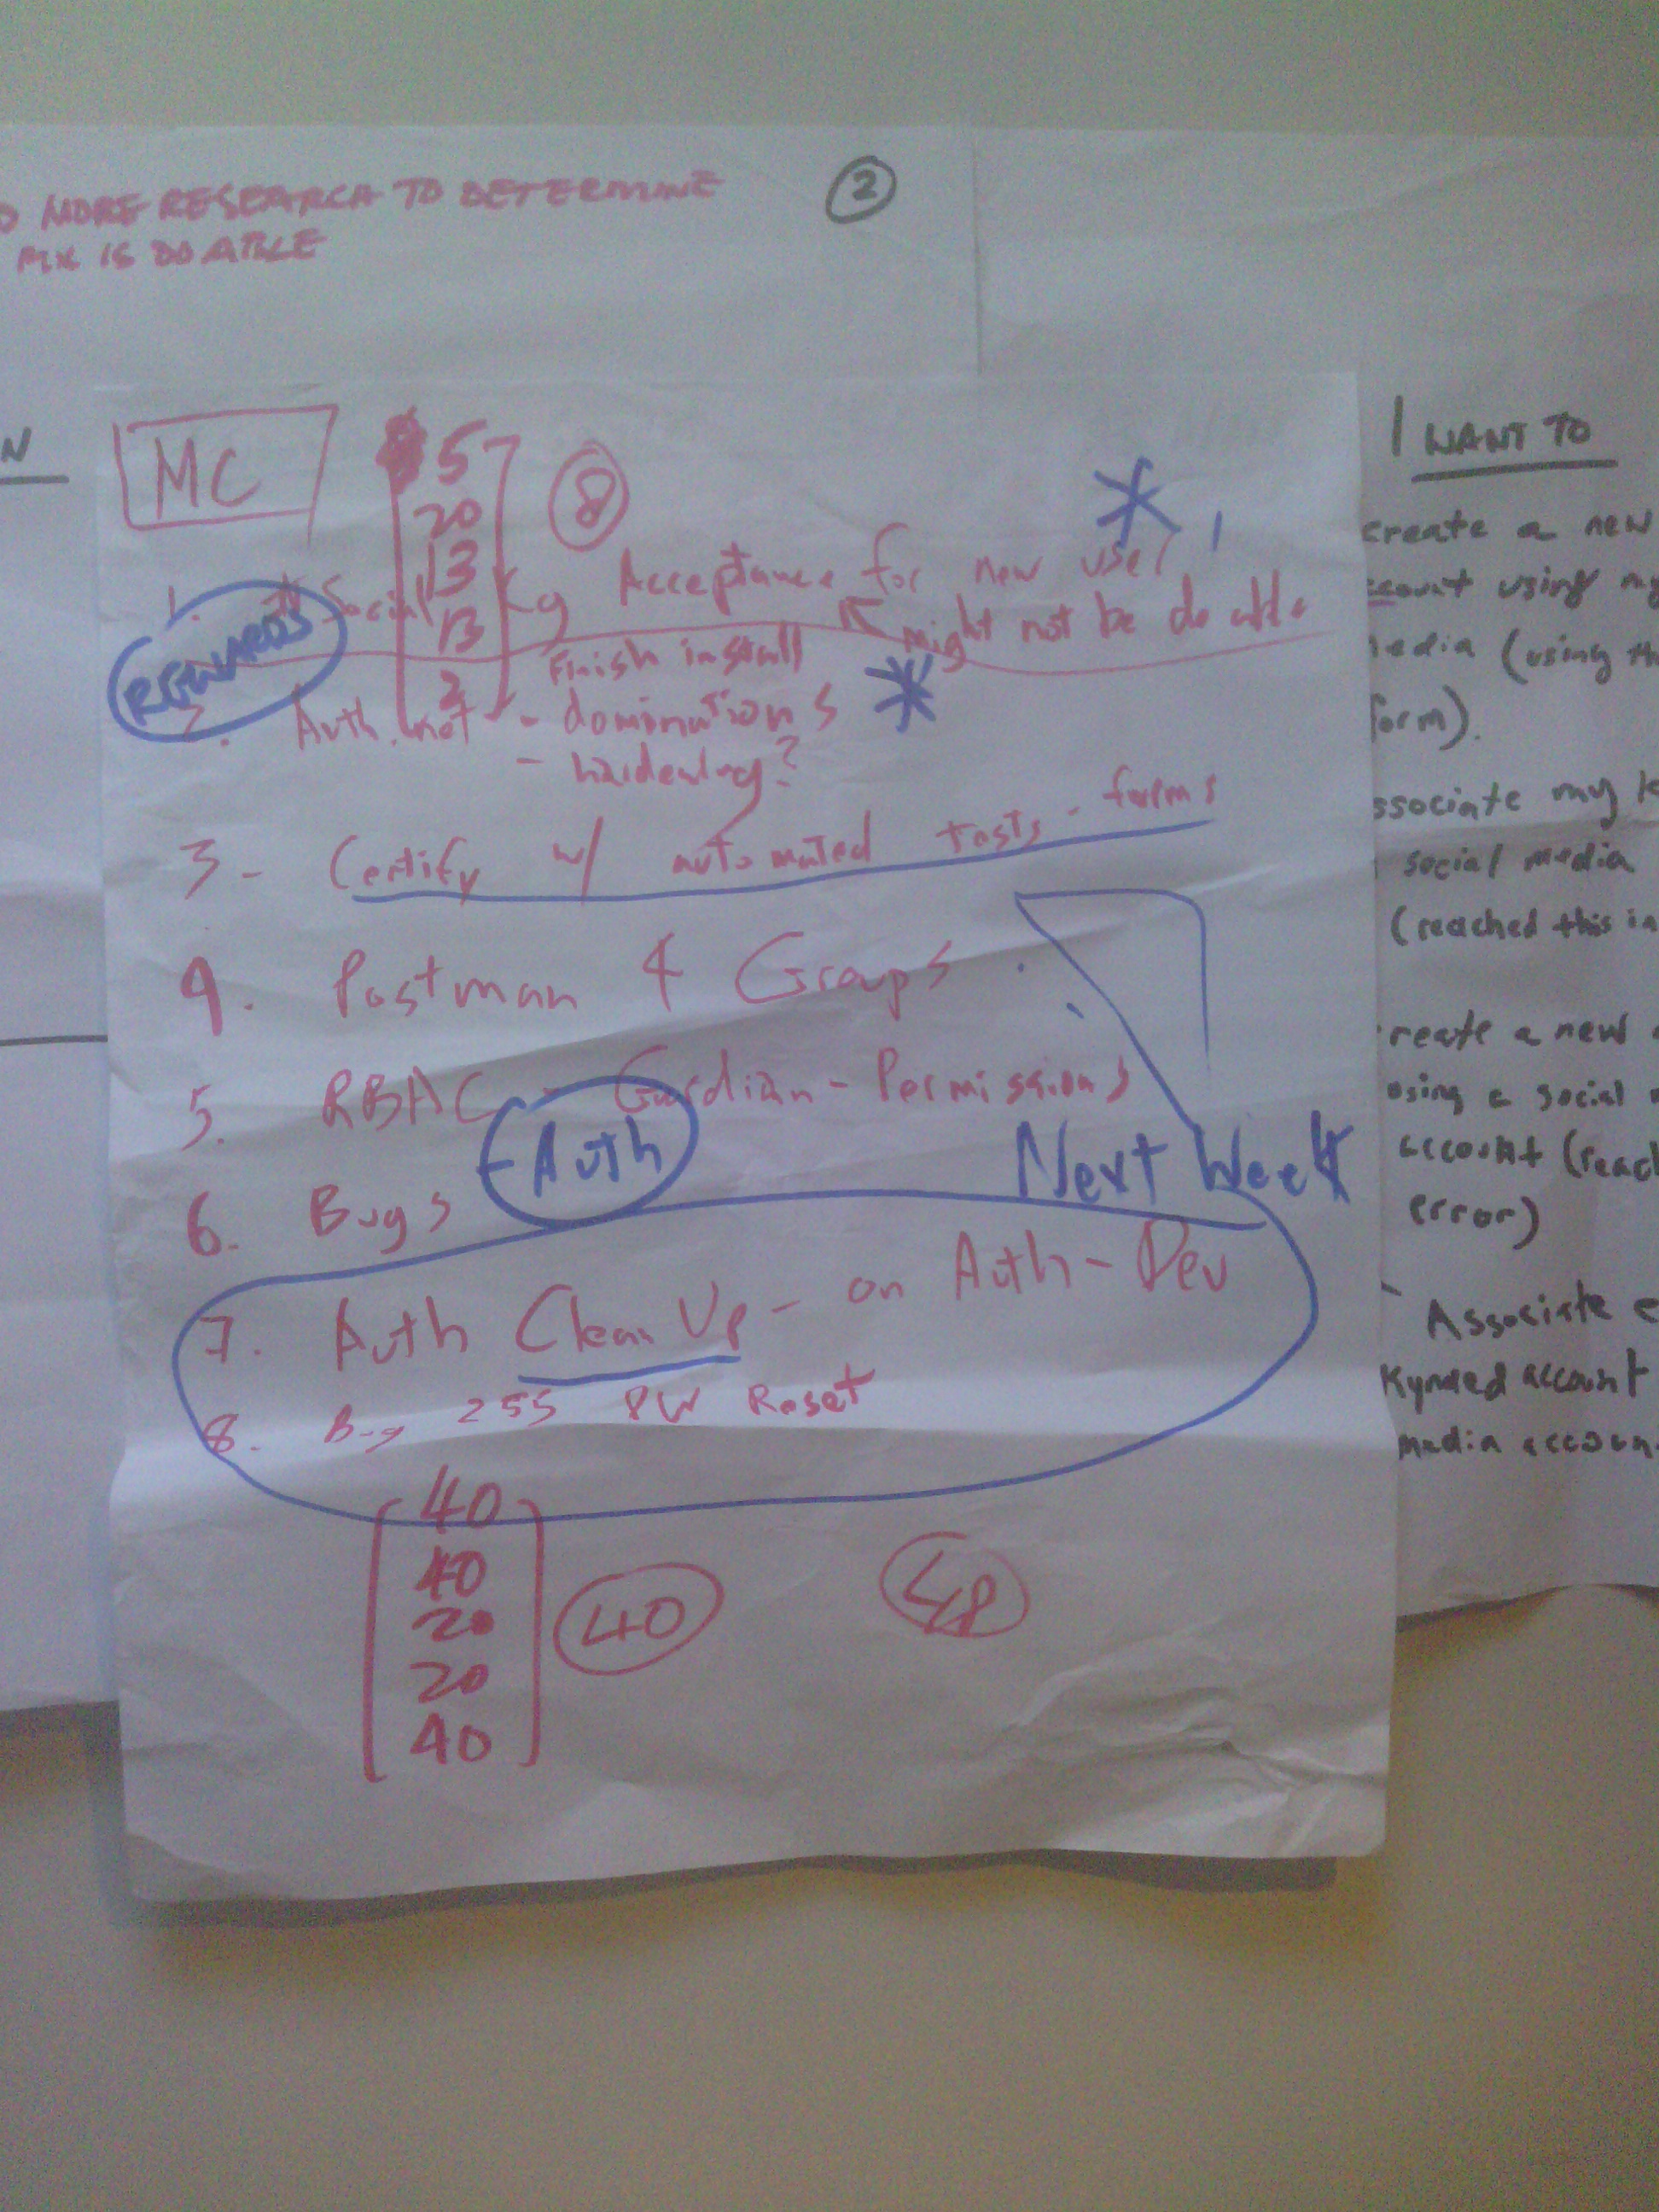 MORE RESEARCH TO DETERMINE
FIX IS DOABLE
2
N
MC
5
20
13
13
2
8
1. Social Acceptance for new user
might not be do able
REWARDS
Finish install
2. Auth.net - dominutions
- hardening?
3 - Certify w/ automated tests - forms
4. Postman & Groups
5. RBAC - Gardian - Permissions
6. Bugs - Auth
Next Week
7. Auth Clean Up - on Auth-Dev
8. Bug 255 PW Reset
40
40
20
20
40
40
48
I WANT TO
create a new
account using my
media (using th
form).
ssociate my k
social media
(reached this in
reate a new
using a social
account (reac
error)
Associate e
Kynded account
media accoun